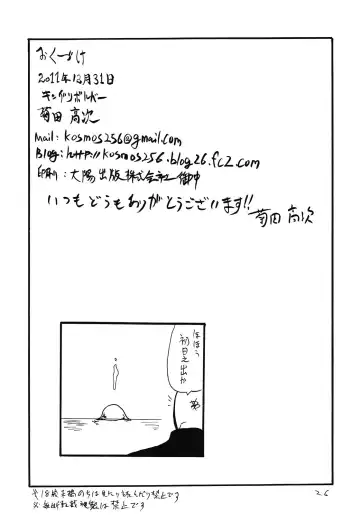 おくづけ
2011年12月31日
キングリボルバー
菊田 高次
Mail: kosmos256@gmail.com
Blog: http://kosmos256.blog26.fc2.com
印刷：大陽出版株式会社御中
いつもどうもありがとうございます!!
菊田 高次
ほほう
初日之出か
26
※18歳未満の
禁止です
※無断転載複製は禁止です